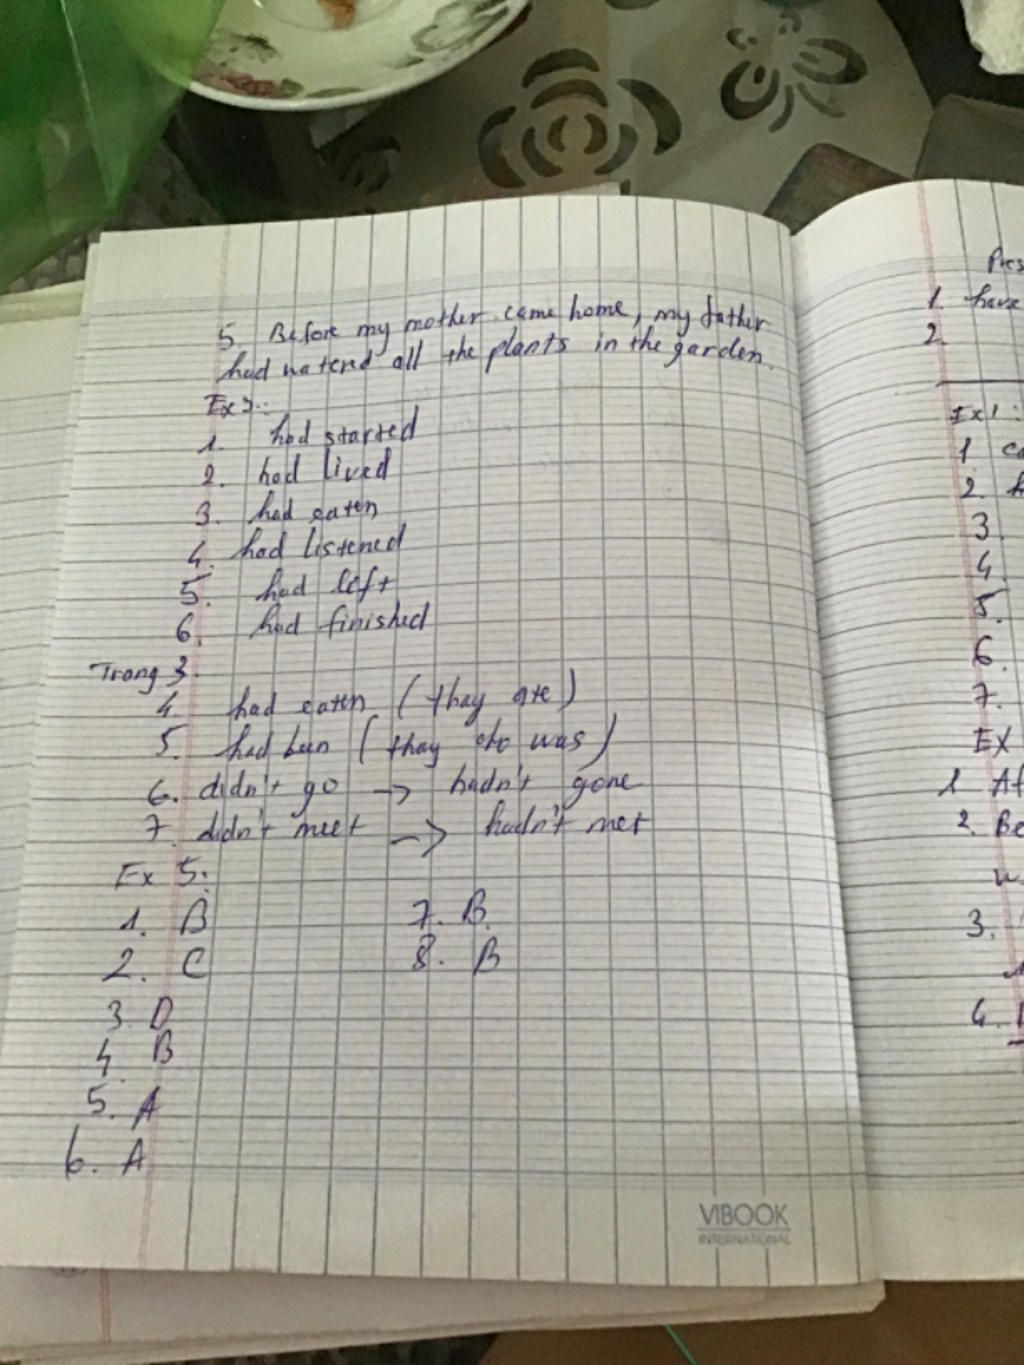 5. Before my mother came home, my father
had watered all the plants in the garden.
Ex 3:
1. had started
2. had lived
3. had eaten
4. had listened
5. had left
6. had finished
Trang 3.
4. had eaten (thay ate)
5. had been (thay cho was)
6. didn't go → hadn't gone
7. didn't meet → hadn't met
Ex 5:
1. B
2. C
3. D
4. B
5. A
6. A
7. B.
8. B
VIBOOK
INTERNATIONAL
1. have
2.
Ex 1:
1
2.
3.
4
5.
6.
7.
EX
1
2. Be
3.
4.